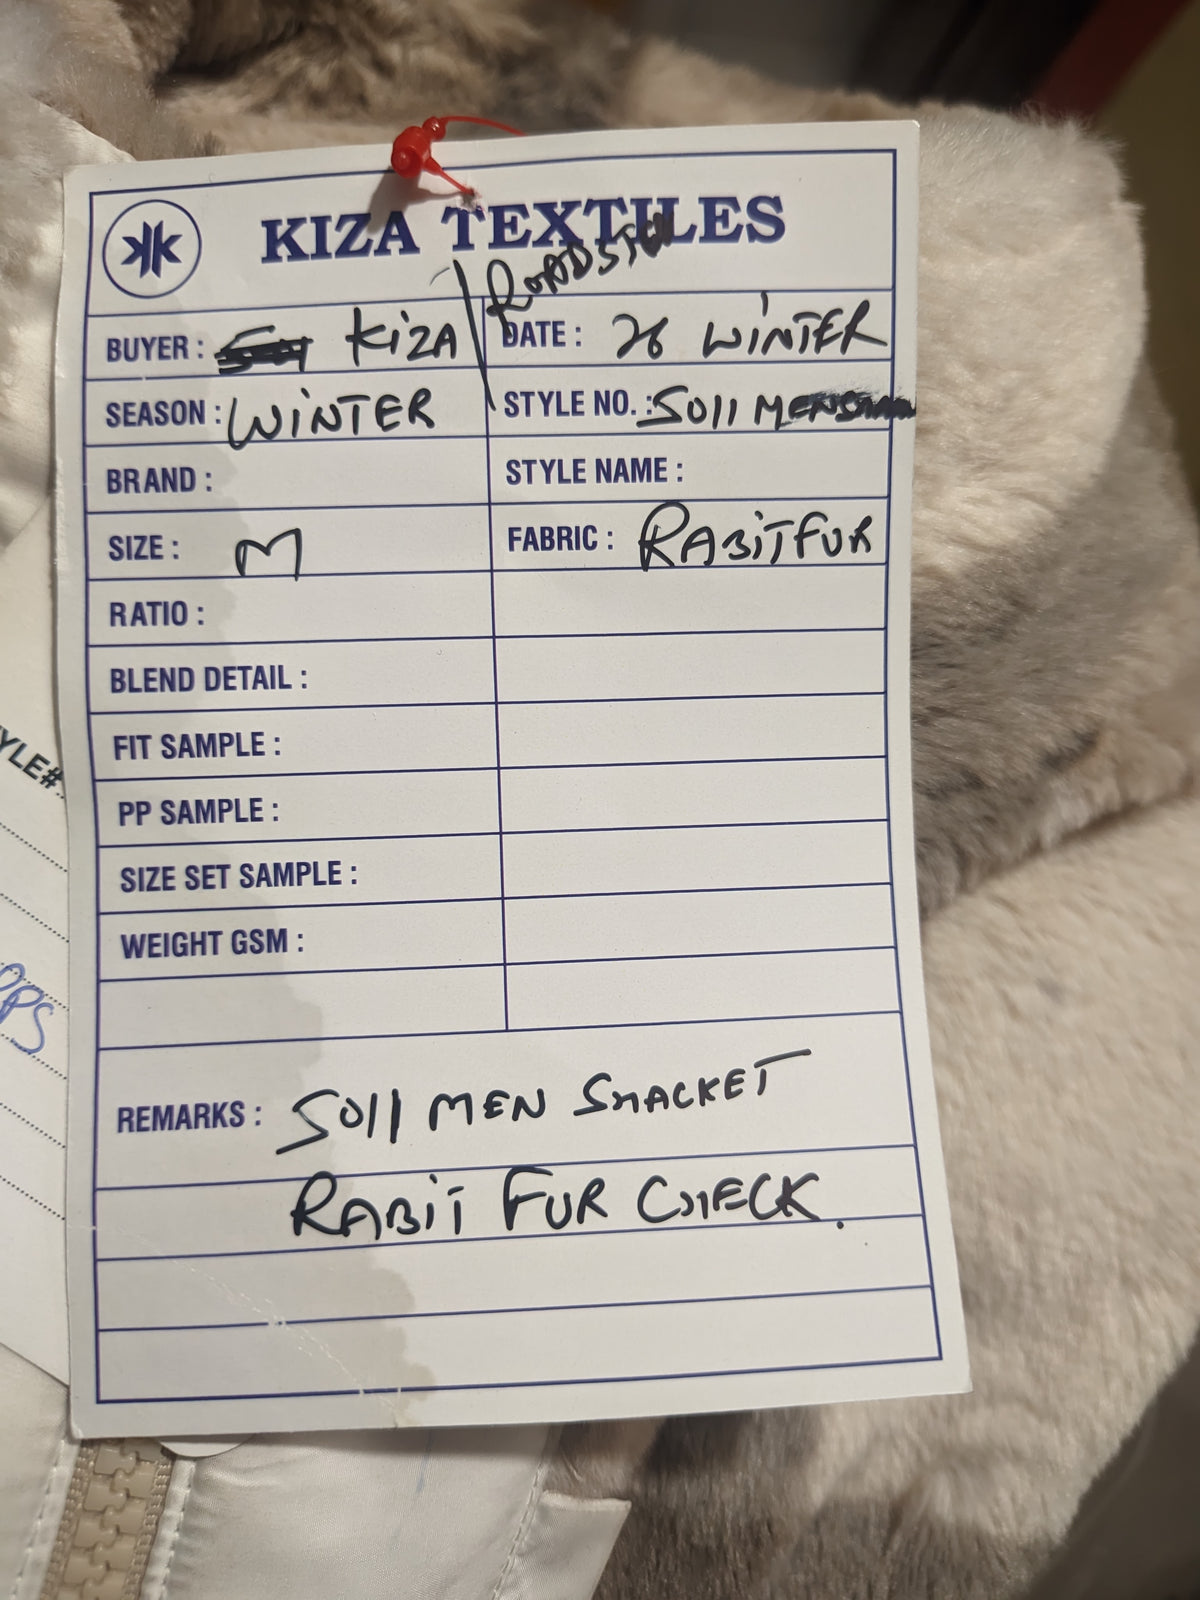 KIZA TEXTILES
BUYER : KiZA /
DATE : 26 WiNTER
SEASON : WiNTER
STYLE NO. : 5011 MEN
BRAND :
STYLE NAME :
SIZE : M
FABRIC : RABiTFUR
RATIO :
BLEND DETAIL :
FIT SAMPLE :
PP SAMPLE :
SIZE SET SAMPLE :
WEIGHT GSM :
REMARKS : 5011 MEN SHACKET
RABiT FUR CHECK.
YLE#
OPS